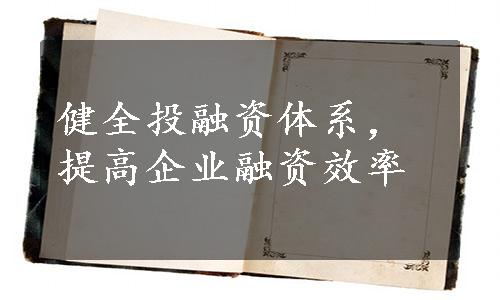 健全投融资体系，
提高企业融资效率